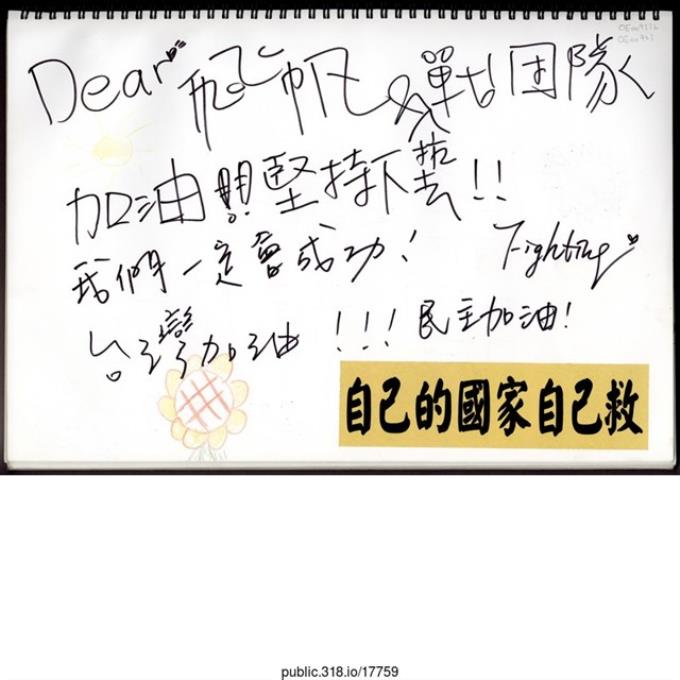 Dear 飛帆 & 戰团隊
加油!!! 堅持下去!!
我們一定會成功! Fighting
台灣加油!!! 民主加油!
自己的國家自己救
public.318.io/17759